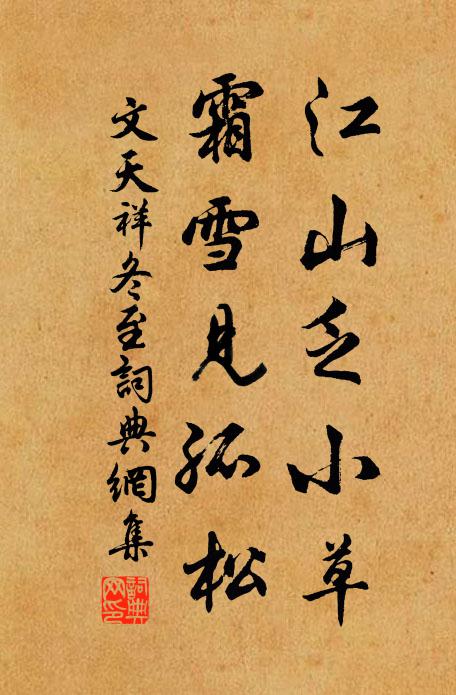 江山乏小草
霜雪見孤松
文天祥冬至詞典網集
詞典網印